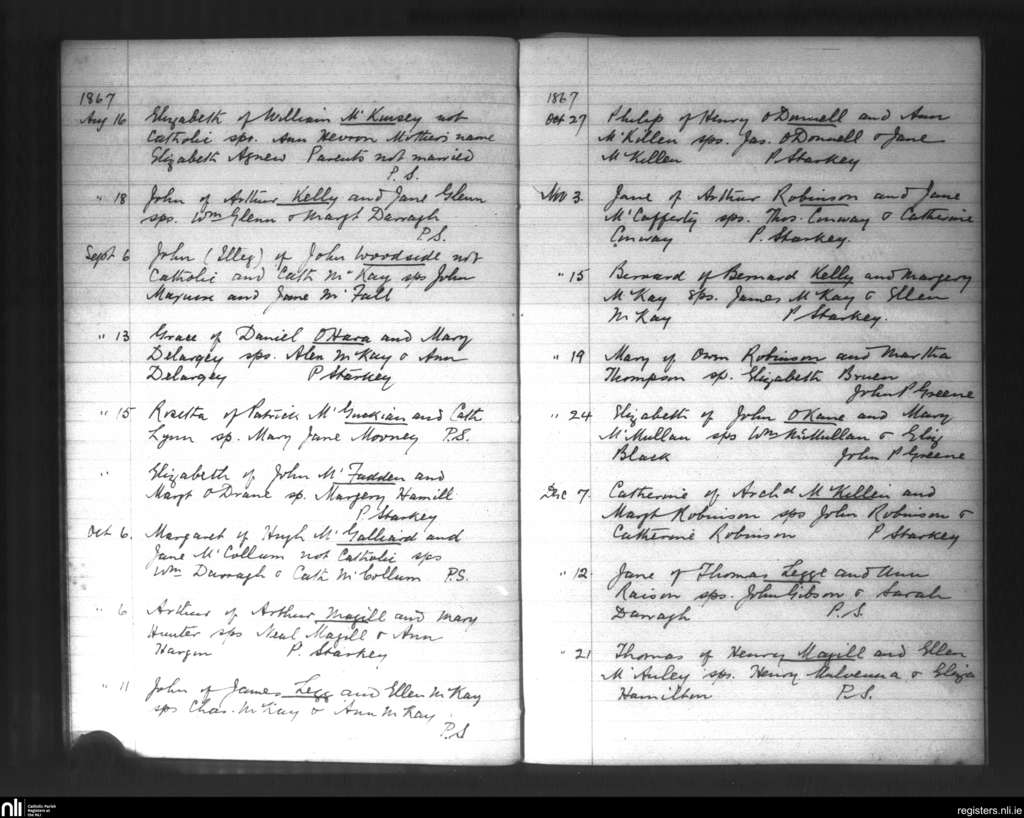 1867
Aug 16 Elizabeth of William McKinsey not
Catholic sps. Ann Hevron Mother's name
Elizabeth Agnew Parents not married
P. S.
" 18 John of Arthur Kelly and Jane Glenn
sps. Wm Glenn & Margt Darragh
P.S.
Sept 6 John (Illeg) of John Woodside not
Catholic and Cath McKay sps John
and Jane McFall
" 13 Grace of Daniel OHara and Mary
Delargey sps. Alex McKay & Ann
Delargey P Starkey
" 15 Rosetta of Patrick McGuckian and Cath
Lynn sp. Mary Jane Mooney P.S.
" Elizabeth of John McFadden and
Margt ODrane sp. Margery Hamill
P Starkey
Oct 6. Margaret of Hugh McGalliard and
Jane McCollum not Catholic sps
Wm Darragh & Cath McCollum P.S.
" 6 Arthur of Arthur Magill and Mary
Hunter sps Neal Magill & Ann
Hargin P. Starkey
" 11 John of James Legg and Ellen McKay
sps Chas. McKay & Ann McKay
P.S
1867
Oct 27 Philip of Henry ODonnell and Ann
McKillen sps. Jas. ODonnell & Jane
McKillen P Starkey
Nov 3. Jane of Arthur Robinson and Jane
McCafferty sps. Thos. Conway & Catherine
Conway P. Starkey.
" 15 Bernard of Bernard Kelly and Margery
McKay Sps. James McKay & Ellen
McKay P Starkey.
" 19 Mary of Owen Robinson and Martha
Thompson sp. Elizabeth Bruen
John P Greene
" 24 Elizabeth of John OKane and Mary
McMullan sps Wm McMullan & Eliz
Black John P Greene
Dec 7. Catherine of Archd McKillen and
Margt Robinson sps John Robinson &
Catherine Robinson P Starkey
" 12. Jane of Thomas Legge and Ann
Raison sps. John Gibson & Sarah
Darragh P. S.
" 21 Thomas of Henry Magill and Ellen
McAuley sps. Henry Mulvenna & Eliza
Hamilton P.S.
nli Catholic Parish
Registers at
the NLI
registers.nli.ie